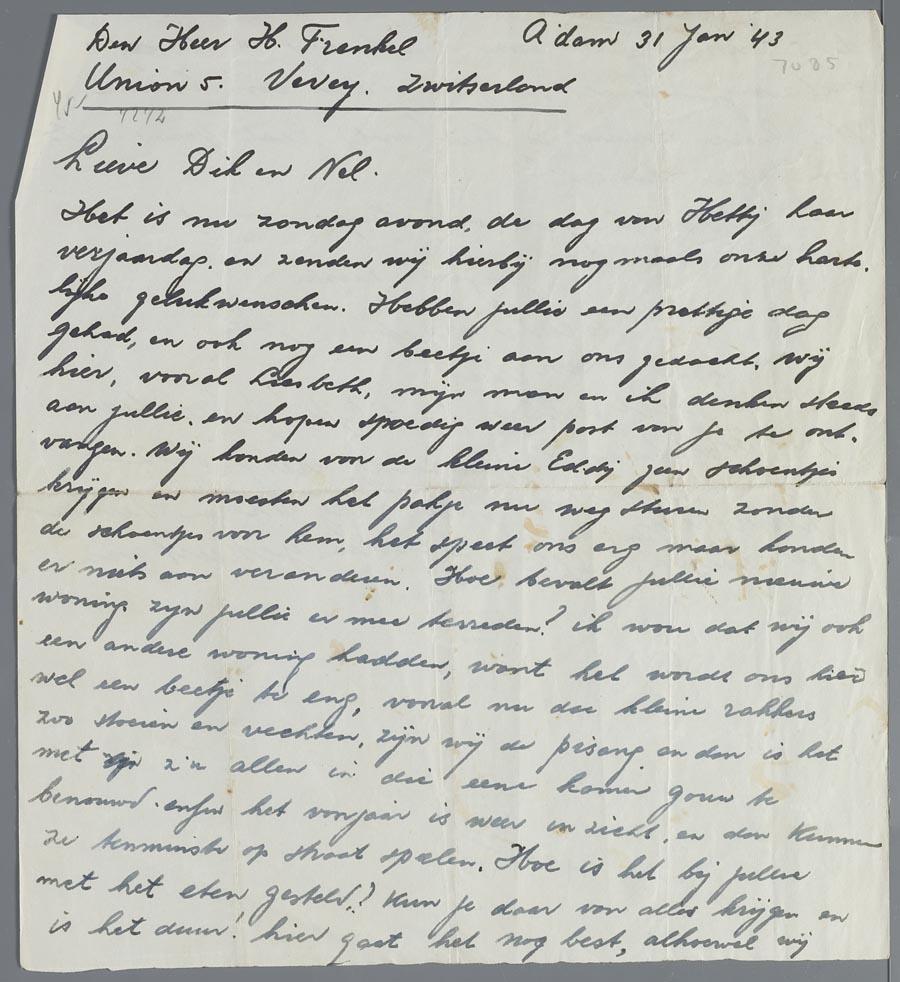 Den Heer H. Frenkel A'dam 31 Jan '43
7085
Union 5. Vevey. Zwitserland
7272
Lieve Dik en Nel.
Het is nu zondag avond, de dag van Hettij haar
verjaardag. en zenden wij hierbij nogmaals onze harte.
lijke gelukwenschen. Hebben jullie een prettige dag
gehad, en ook nog een beetje aan ons gedacht. Wij
hier, vooral Liesbeth, mijn man en ik denken steeds
aan jullie. en hopen spoedig weer post van je te ont.
vangen. Wij konden voor de kleine Eddij geen schoentjes
krijgen en moesten het pakje nu weg sturen zonder
de schoentjes voor hem, het speet ons erg maar konden
er niets aan veranderen. Hoe bevalt jullie nieuwe
woning zijn jullie er mee tevreden? ik wou dat wij ook
een andere woning hadden, want het wordt ons hier
wel een beetje te eng, vooral nu die kleine rakkers
zoo stoeien en vechten, zijn wij de pisang en dan is het
met z'n allen in die eene kamer gouw te
benouwd. enfin het voorjaar is weer in zicht, en dan kunnen
ze tenminste op straat spelen. Hoe is het bij jullie
met het eten gesteld? Kun je daar van alles krijgen en
is het duur! hier gaat het nog best, alhoewel wij